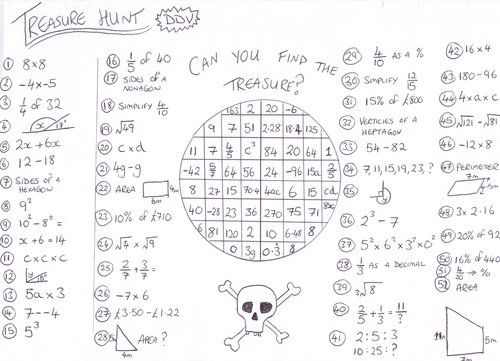 TREASURE HUNT
DDV
CAN YOU FIND THE
TREASURE?
① 8×8
② -4×-5
③ 1/4 of 32
④ x 17°
⑤ 2x+6x
⑥ 12-18
⑦ SIDES OF A
HEXAGON
⑧ 9²
⑨ 10²-8²=
⑩ x+6=14
⑪ c×c×c
⑫
⑬ 5a×3
⑭ 7--4
⑮ 5³
⑯ 1/5 of 40
⑰ SIDES OF A
NONAGON
⑱ SIMPLIFY 4/10
⑲ √49
⑳ c×d
㉑ 4g-g
㉒ AREA 4m
6m
㉓ 10% of £710
㉔ √7 × √9
㉕ 2/7 + 3/7 =
㉖ -7×6
㉗ £3·50-£1·22
㉘ 5m AREA?
4m
163 2 20 -6
9 7 51 2·28 18·4 125
11 7 4/5 c³ 84 20 64 1
-42 5/7 64 56 24 -96 15a 2/5
8 27 15 70·4 40c 6 15 cd
40 -28 23 36 270 75 71 8x
6 81 120 2 10 6·48 8
0 3g 0·3 8
㉙ 4/10 AS A %
㉚ SIMPLIFY 12/15
㉛ 15% of £800
㉜ VERTICIES OF A
HEPTAGON
㉝ 54-82
㉞ 7,11,15,19,23,?
㉟
㊱ 2³-7
㊲ 5²×6²×3²×0²
㊳ 1/3 AS A DECIMAL
㊴ ³√8
㊵ 2/5 + 1/3 = 11/?
㊶ 2:5:3
10:25:?
㊷ 16×4
㊸ 180-96
㊹ 4×a×c
㊺ √121-√81
㊻ -12×8
㊼ PERIMETER
7m
㊽ 3×2·16
㊾ 20% of 92
㊿ 16% of 440
(51) 4/20 → %
(52) AREA
11m 5m
7m